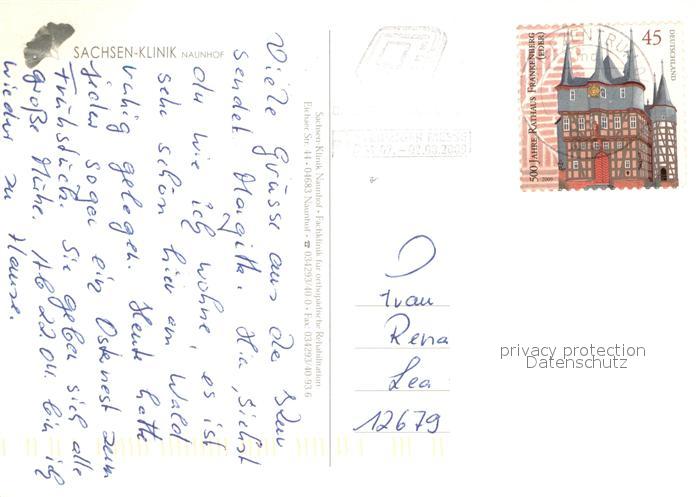 SACHSEN-KLINIK NAUNHOF
Viele Grüsse aus der Kur
sendet Margitta. Hier siehst
du wie ich wohne, es ist
sehr schön hier am Wald
ruhig gelegen. Heute hatte
jeder sogar ein Osternest zum
Frühstück. Sie geben sich alle
große Mühe. Ab 22.04. bin ich
wieder zu Hause.
Sachsen-Klinik Naunhof • Fachklinik für orthopädische Rehabilitation
Eichaer Str. 44 • 04683 Naunhof • ☎ 034293/40 0 • Fax: 034293/40 93 6
500 JAHRE RATHAUS FRANKENBERG
(EDER)
45
DEUTSCHLAND
2009
Frau
Rena
Lea
12679
privacy protection
Datenschutz